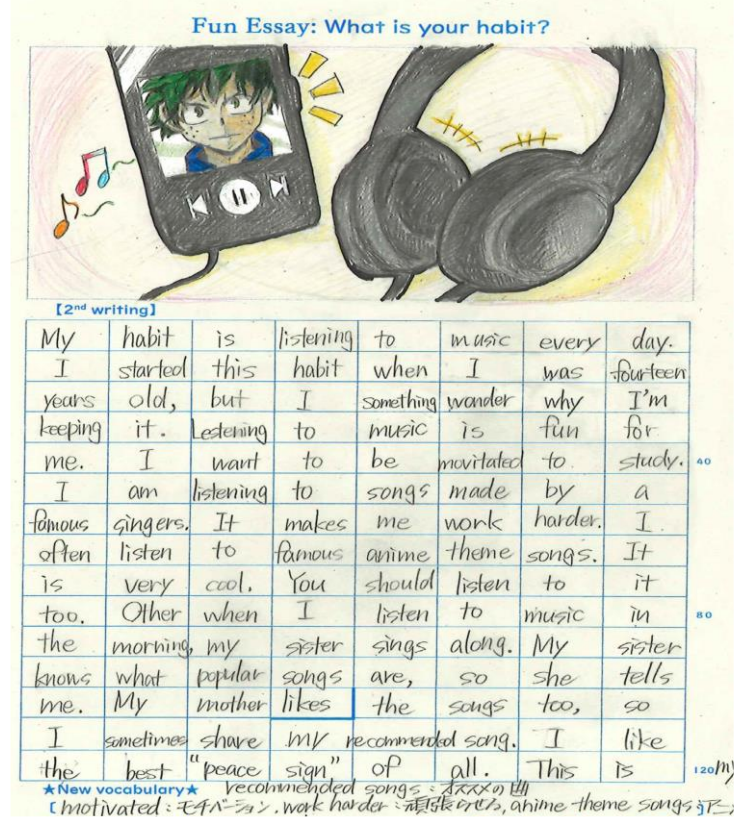 Fun Essay: What is your habit?
【2nd writing】
My habit is listening to music every day.
I started this habit when I was fourteen
years old, but I something wonder why I'm
keeping it. Lestening to music is fun for
me. I want to be movitated to study. 40
I am listening to songs made by a
famous singers. It makes me work harder. I
often listen to famous anime theme songs. It
is very cool. You should listen to it
too. Other when I listen to music in 80
the morning, my sister sings along. My sister
knows what popular songs are, so she tells
me. My mother likes the songs too, so
I sometimes share my recommended song. I like
the best "peace sign" of all. This is 120 my
★New vocabulary★ recommended songs : オススメの曲
[ motivated : モチベーション. work harder : 頑張らせる, anime theme songs : アニ